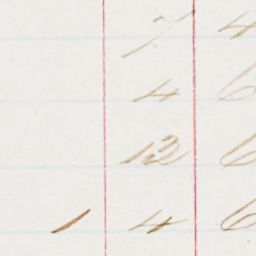 7 4
4 6
12 6
1 4 6